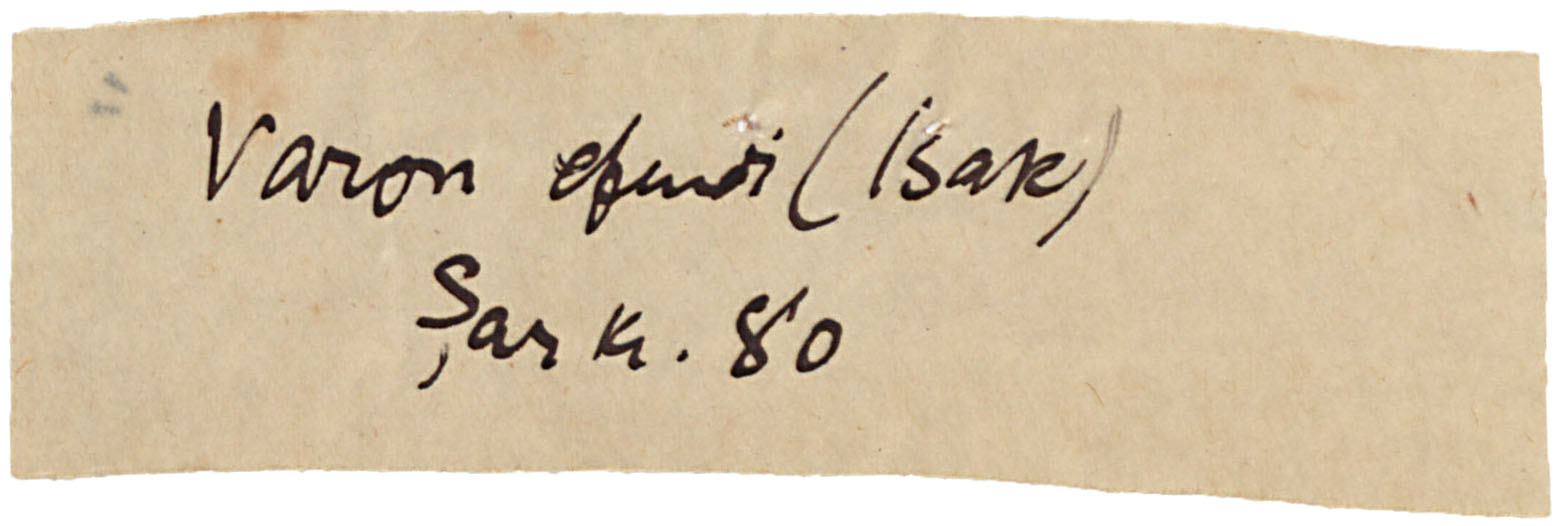 Varon efendi (İsak)
Şarkı. 80